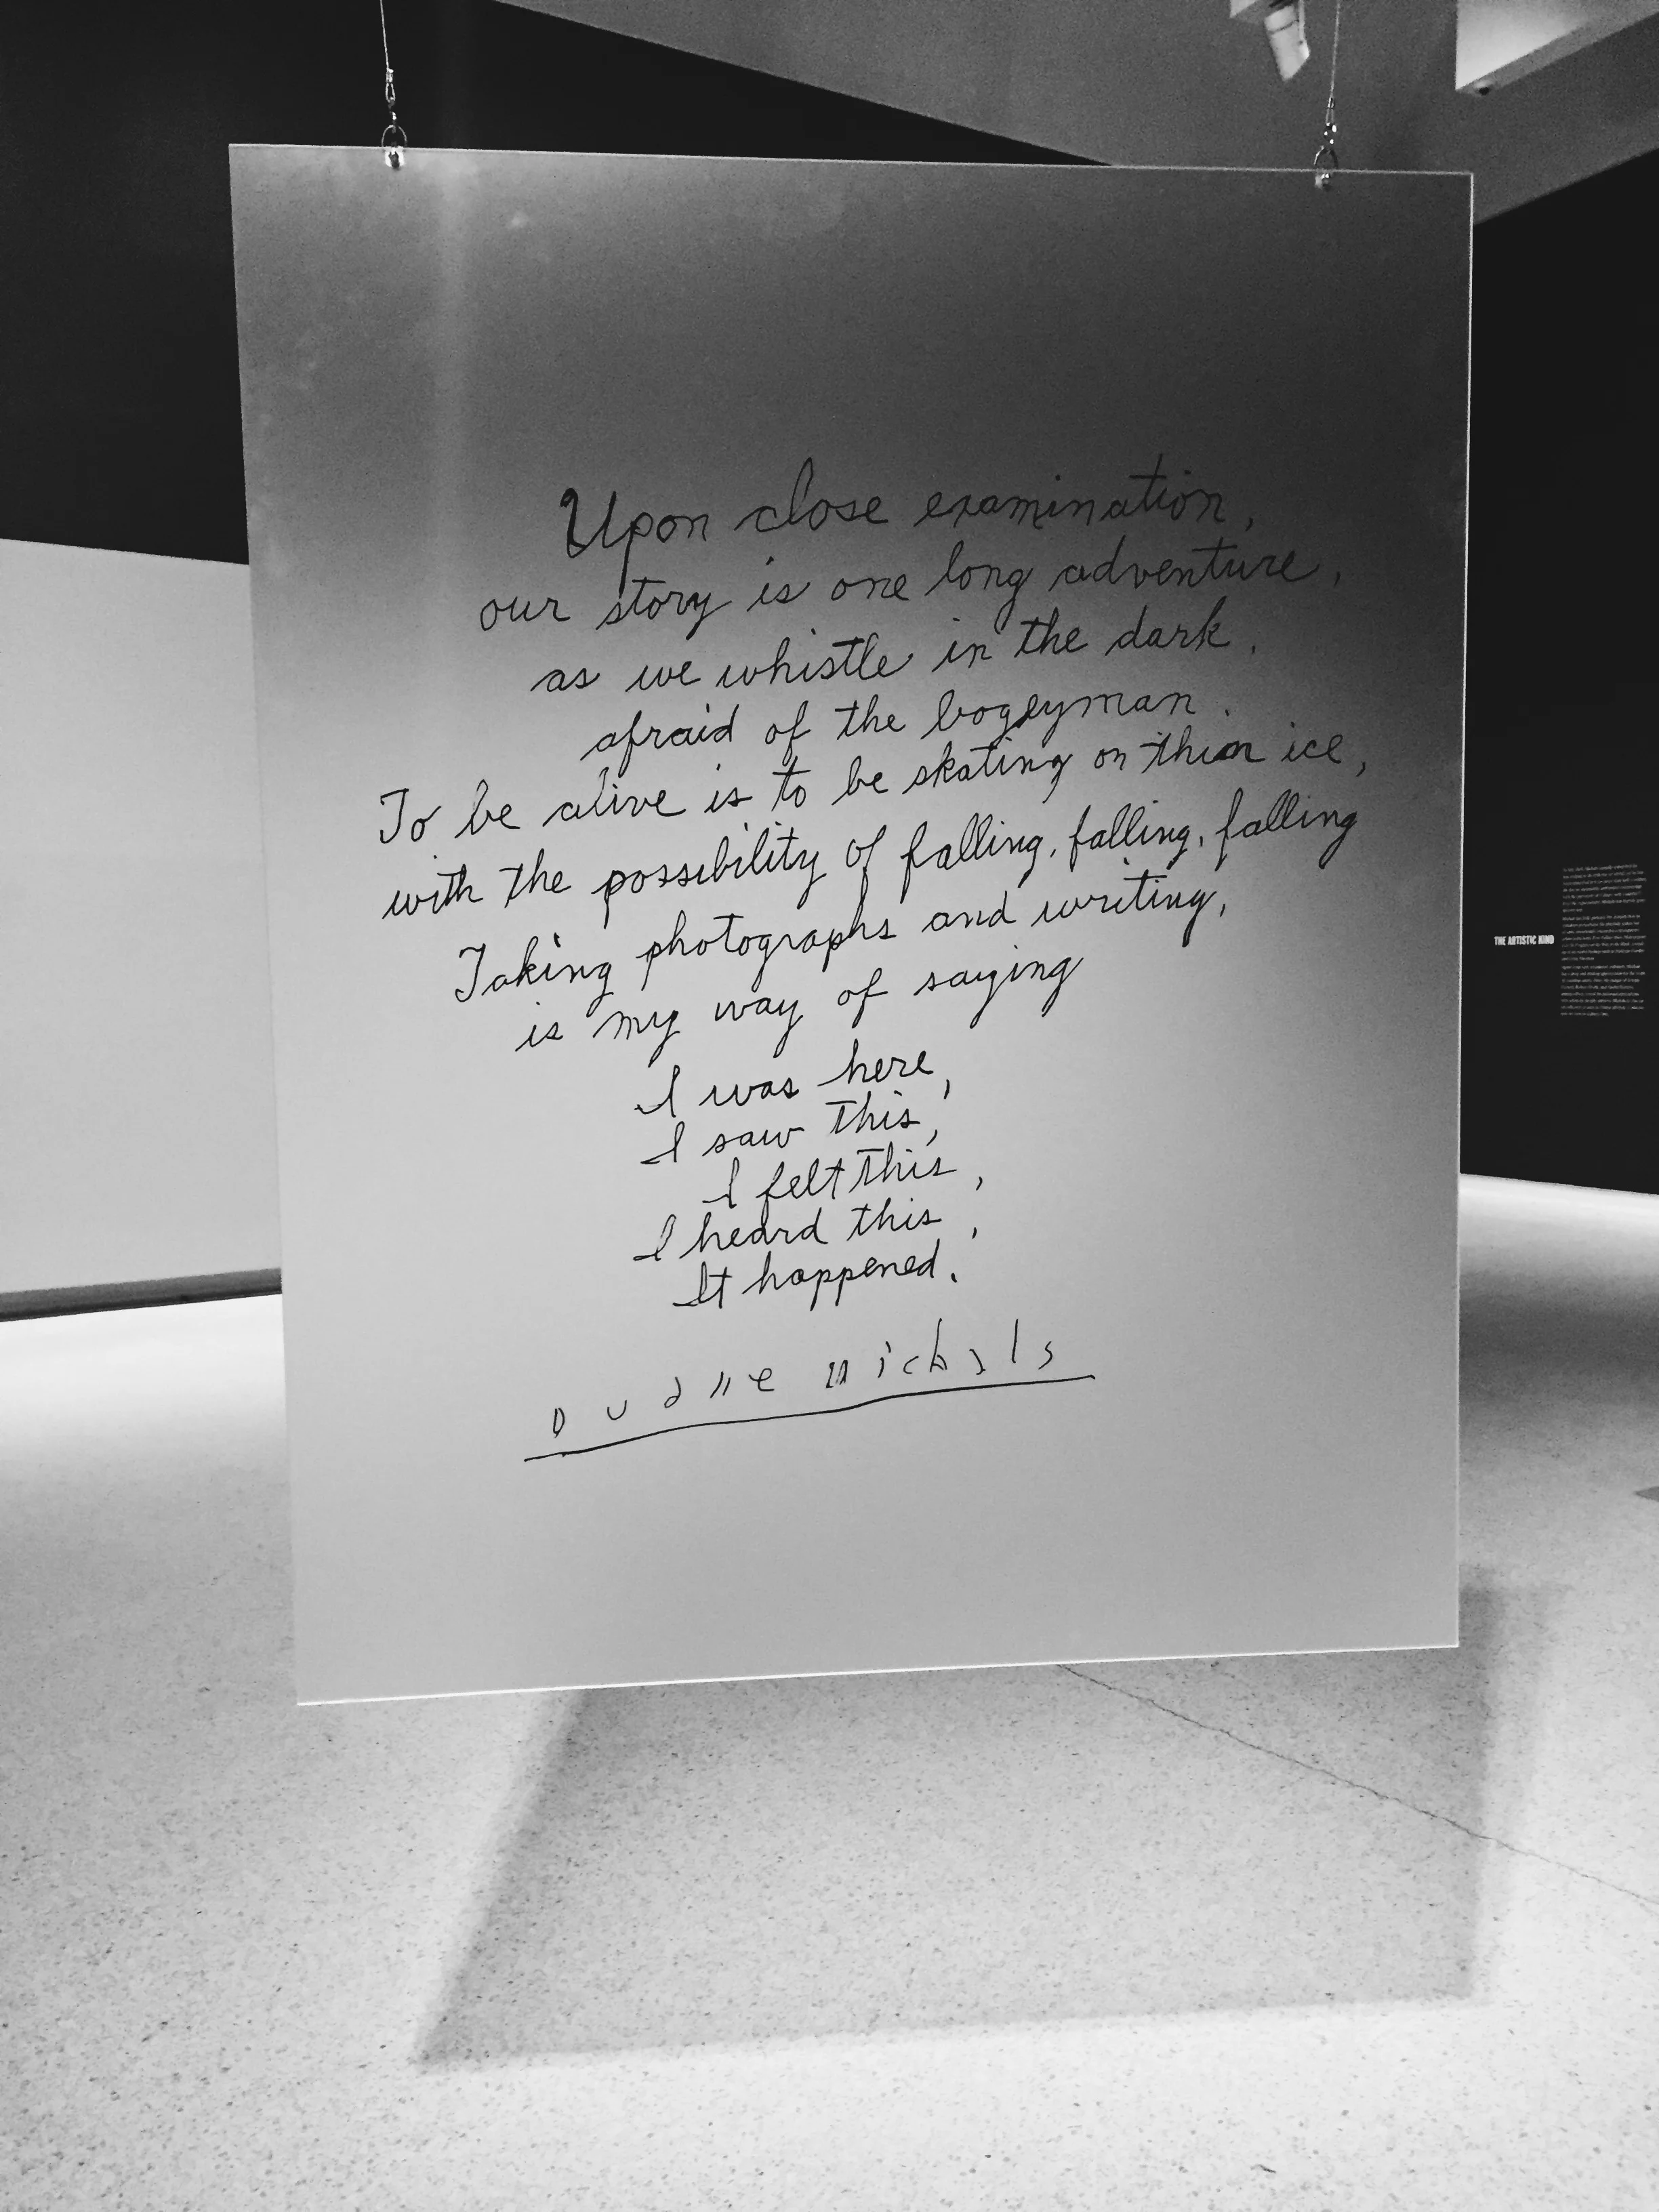 Upon close examination,
our story is one long adventure,
as we whistle in the dark,
afraid of the bogeyman.
To be alive is to be skating on thin ice,
with the possibility of falling, falling, falling
Taking photographs and writing,
is my way of saying
I was here,
I saw this,
I felt this,
I heard this,
It happened.
Duane Michals
THE ARTISTIC KIND